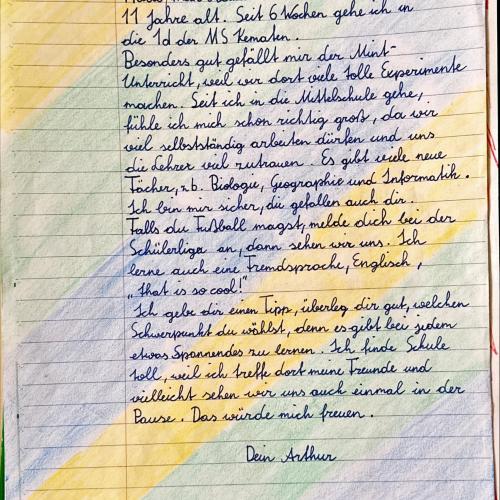 11 Jahre alt. Seit 6 Wochen gehe ich in
die 1d der MS Kematen.
Besonders gut gefällt mir der Mint-
Unterricht, weil wir dort viele tolle Experimente
machen. Seit ich in die Mittelschule gehe,
fühle ich mich schon richtig groß, da wir
viel selbstständig arbeiten dürfen und uns
die Lehrer viel zutrauen. Es gibt viele neue
Fächer, z.b. Biologie, Geographie und Informatik.
Ich bin mir sicher, die gefallen auch dir.
Falls du Fußball magst, melde dich bei der
Schülerliga an, dann sehen wir uns. Ich
lerne auch eine Fremdsprache, Englisch,
„That is so cool!"
Ich gebe dir einen Tipp, überleg dir gut, welchen
Schwerpunkt du wählst, denn es gibt bei jedem
etwas Spannendes zu lernen. Ich finde Schule
toll, weil ich treffe dort meine Freunde und
vielleicht sehen wir uns auch einmal in der
Pause. Das würde mich freuen.
Dein Arthur